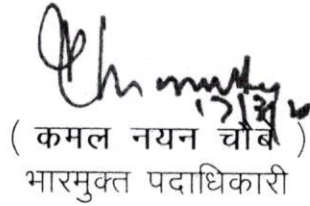 ( कमल नयन चौबे )
भारमुक्त पदाधिकारी